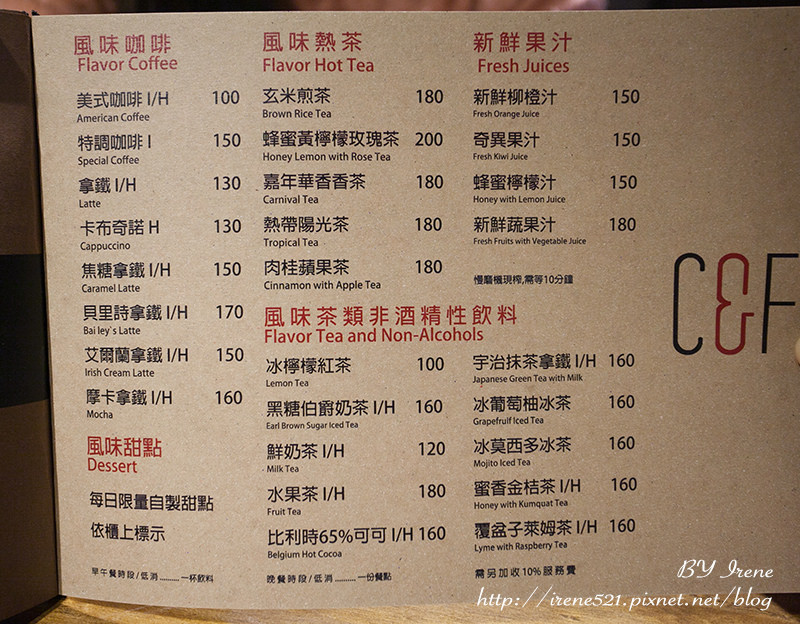 風味咖啡
Flavor Coffee
美式咖啡 I/H 100
American Coffee
特調咖啡 I 150
Special Coffee
拿鐵 I/H 130
Latte
卡布奇諾 H 130
Cappuccino
焦糖拿鐵 I/H 150
Caramel Latte
貝里詩拿鐵 I/H 170
Bai ley`s Latte
艾爾蘭拿鐵 I/H 150
Irish Cream Latte
摩卡拿鐵 I/H 160
Mocha
風味甜點
Dessert
每日限量自製甜點
依櫃上標示
早午餐時段/低消..........一杯飲料
風味熱茶
Flavor Hot Tea
玄米煎茶 180
Brown Rice Tea
蜂蜜黃檸檬玫瑰茶 200
Honey Lemon with Rose Tea
嘉年華香香茶 180
Carnival Tea
熱帶陽光茶 180
Tropical Tea
肉桂蘋果茶 180
Cinnamon with Apple Tea
新鮮果汁
Fresh Juices
新鮮柳橙汁 150
Fresh Orange Juice
奇異果汁 150
Fresh Kiwi Juice
蜂蜜檸檬汁 150
Honey with Lemon Juice
新鮮蔬果汁 180
Fresh Fruits with Vegetable Juice
慢磨機現榨,需等10分鐘
風味茶類非酒精性飲料
Flavor Tea and Non-Alcohols
冰檸檬紅茶 100
Lemon Tea
黑糖伯爵奶茶 I/H 160
Earl Brown Sugar Iced Tea
鮮奶茶 I/H 120
Milk Tea
水果茶 I/H 180
Fruit Tea
比利時65%可可 I/H 160
Belgium Hot Cocoa
晚餐時段/低消..........一份餐點
宇治抹茶拿鐵 I/H 160
Japanese Green Tea with Milk
冰葡萄柚冰茶 160
Grapefruif Iced Tea
冰莫西多冰茶 160
Mojito Iced Tea
蜜香金桔茶 I/H 160
Honey with Kumquat Tea
覆盆子萊姆茶 I/H 160
Lyme with Raspberry Tea
需另加收10%服務費
C&F
BY Irene
http://irene521.pixnet.net/blog